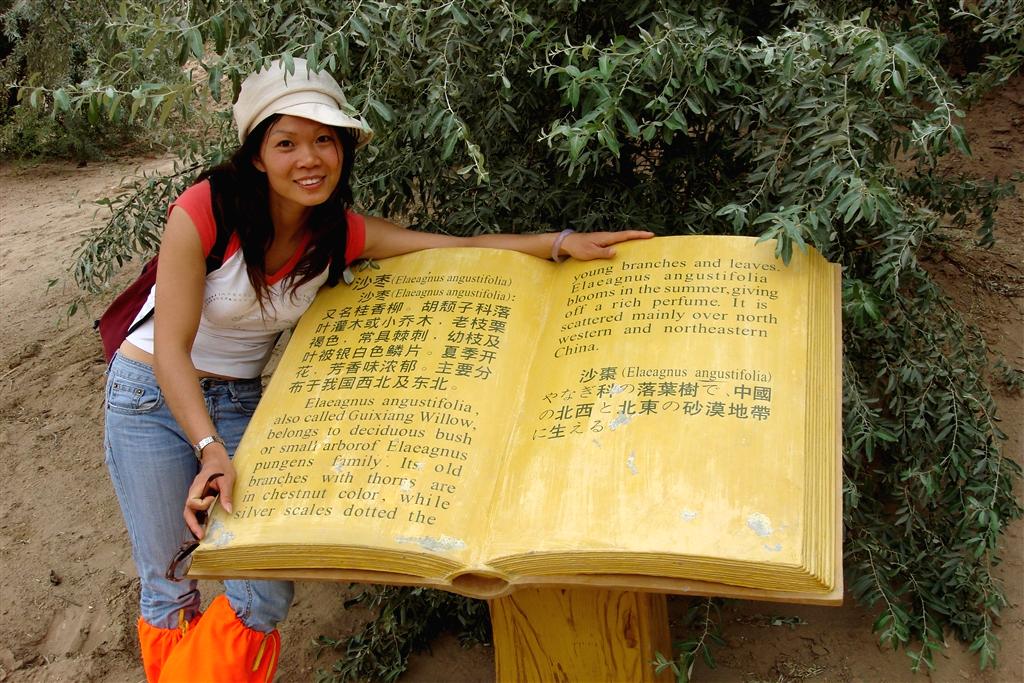 沙枣(Elaeagnus angustifolia)
沙枣(Elaeagnus angustifolia):
又名桂香柳。胡颓子科落
叶灌木或小乔木，老枝栗
褐色，常具棘刺，幼枝及
叶被银白色鳞片。夏季开
花，芳香味浓郁。主要分
布于我国西北及东北。
Elaeagnus angustifolia,
also called Guixiang Willow,
belongs to deciduous bush
or small arborof Elaeagnus
pungens family. Its old
branches with thorns are
in chestnut color, while
silver scales dotted the
young branches and leaves.
Elaeagnus angustifolia
blooms in the summer,giving
off a rich perfume. It is
scattered mainly over north
western and northeastern
China.
沙棗(Elaeagnus angustifolia)
やなぎ科の落葉樹で、中國
の北西と北東の砂漠地帶
に生える。